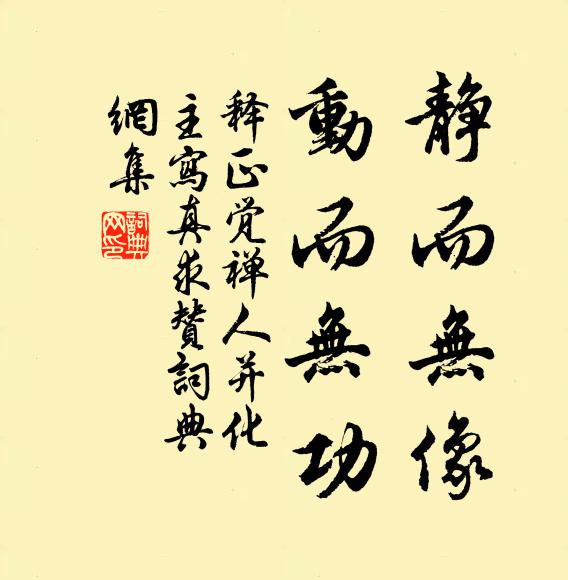 静而無像
動而無功
释正觉禅人并化
主寫真求贊詞典
網集
詞典网印